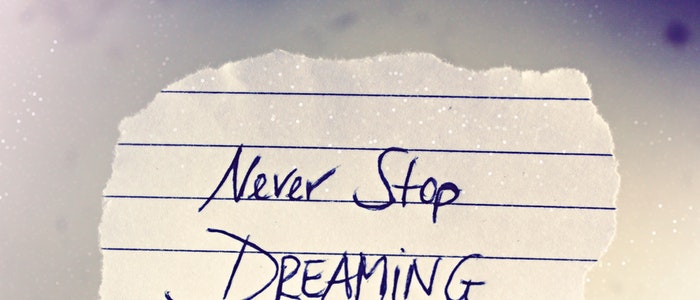 Never Stop
DREAMING